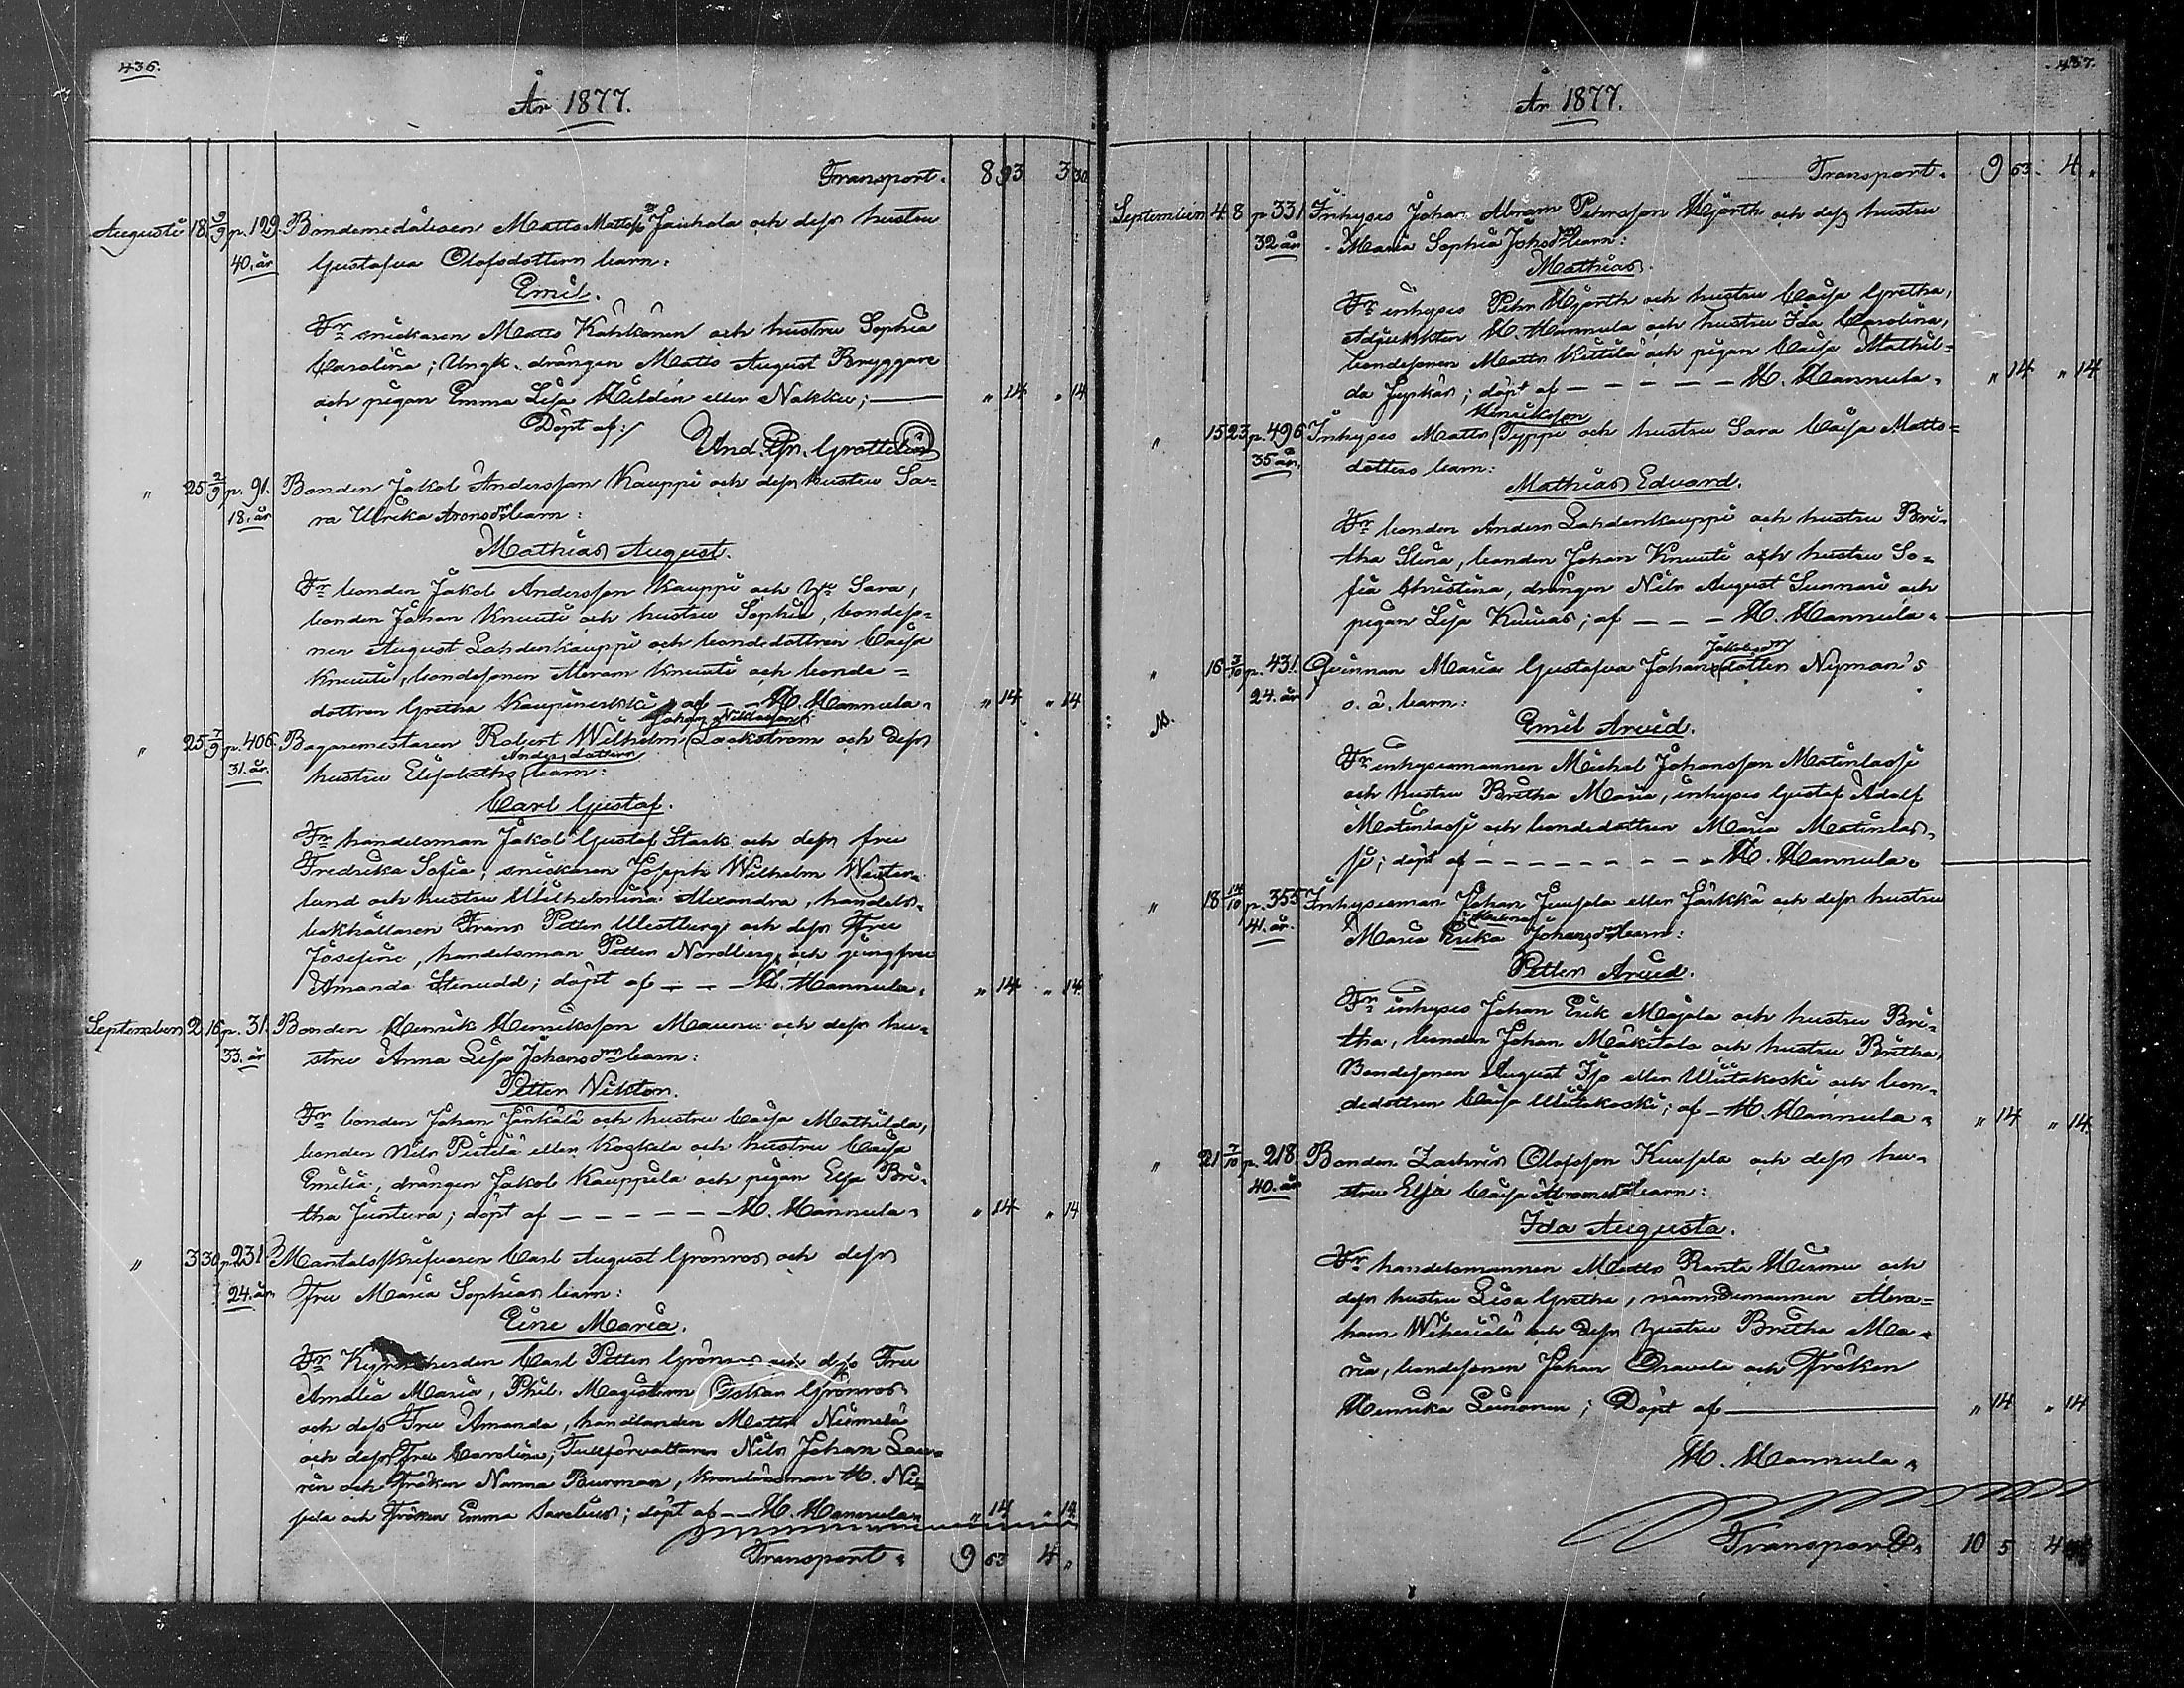 436.
År 1877.
Transport. 8 93 3 30
Augusti 18 2/9 p. 129. Bondemedålaren Matts Mattsson Jaukola och dess hustru
40. år Gustafva Olofsdotters barn:
Emil.
Fr snickaren Matts Kähkönen och hustru Sophia
Carolina; Ungk. drängen Matts August Bryggare
och pigan Emma Lisa Hildén eller Nakku; — " 14 " 14
Döpt af:
And. Gr.
" 25 2/9 p. 91. Bonden Jakob Andersson Kauppi och dess hustru Sa-
18. år ra Ulrika Aronsdrs barn:
Mathias August.
Fr bonden Jakob Andersson Kauppi och h. Sara,
bonden Johan Knuuti och hustru Sophia, bondeso-
nen August Lahdenkauppi och bondedottren Caisa
Knuuti, bondesonen Abram Knuuti och bonde-
dottren Gretha; af — M. Mannula. " 14 " 14
Johan Niklasson
" 25 7/9 p. 406. Bagaremästaren Robert Wilhelm Lackström och dess
Andersdotters
31. år. hustru Elisabeths barn:
Carl Gustaf.
Fr handelsman Jakob Gustaf Stark och dess fru
Fredrika Sofia, snickaren Joseph Wilhelm Wester-
lund och hustru Wilhelmina Alexandra, handels-
bokhållaren Frans Petter Westberg och dess Fru
Josefine, handelsman Petter Nordberg och jungfru
Amanda Stenudd; döpt af — — M. Mannula. " 14 " 14.
September 2 16 p. 31. Bonden Henrik Henriksson Maunu och dess hu-
33. år stru Anna Lisa Johansdrs barn:
Petter Nikton.
Fr bonden Johan Jänkälä och hustru Caisa Mathilda,
bonden Nils Pietilä eller Koskela och hustru Caisa
Emilia, drängen Jakob Kauppila och pigan Elsa Bri-
tha Juntura; döpt af — — — — — M. Mannula. " 14 " 14
" 3 30 p. 231. Mantalsskrifvaren Carl August Grönros och dess
24. år Fru Maria Sophias barn:
Eine Maria.
Fr Carl Petter Grönros och dess Fru
Amalia Maria, Phil. Magistern Oskar Grönros
och dess Fru Amanda, handlanden Matts Niemelä
och dess Fru Carolina, Tullförvaltaren Nils Johan Lau-
rén och Fröken Nanna Burman, kronolänsman H. Nis-
sula och Fröken Emma Sarelius; döpt af — M. Mannula. " 14 " 14
Transport. 9 63 4 "
437.
År 1877.
Transport. 9 63. 4 "
September 4 8 p. 331. Inhyses Johan Abram Pehrsson Hjorth och dess hustru
32 år Maria Sophia Johsdrs barn:
Mathias.
Fr inhyses Pehr Hjorth och hustru Caisa Gretha,
Adjunkten M. Mannula och hustru Ida Carolina,
bondesonen Matts Kittilä och pigan Caisa Mathil-
da Jupkas; döpt af — — — — — M. Mannula. " 14 " 14
Henriksson
" 15 23 p. 496 Inhyses Matts Typpi och hustru Sara Caisa Matts-
35 år. dotters barn:
Mathias Edvard.
Fr bonden Anders Lahdenkauppi och hustru Bri-
tha Stina, bonden Johan Knuuti och hustru So-
fia Christina, drängen Nils August Sunnari och
pigan Lisa Kuivas; af — — — M. Mannula.
Jakobsdr
" 16 3/10 p. 431. Qvinnan Maria Gustafva Johansdotter Nyman's
24. år o. ä. barn:
Emil Arvid.
Fr inhysesmannen Michel Johansson Matinlassi
och hustru Britha Maria, inhyses Gustaf Adolf
Matinlassi och bondedottren Maria Matinlas-
si; döpt af — — — — — — — — M. Mannula.
" 18 14/10 p. 355 Inhysesman Johan Juusola eller Järkkä och dess hustru
41. år. Maria Erika Johansdrs barn:
Petter Arvid.
Fr inhyses Johan Erik Majala och hustru Bri-
tha, bonden Johan Mäkitalo och hustru Britha,
Bondesonen August Iso eller Uiitakoski och bon-
dedottren Caisa Uiitakoski; af — M. Mannula. " 14 " 14.
" 21 7/10 p. 218. Bonden Zachris Olofsson Kuusela och dess hu-
40. år stru Elsa Caisa Abramsdrs barn:
Ida Augusta.
Fr handelsmannen Matts Ranta Hurmu och
dess hustru Lisa Gretha, nämndemannen Abra-
ham Wiheriälä och dess hustru Britha Ma-
ria, bondesonen Johan Oravala och Fröken
Henrika Leinonen; Döpt af — " 14 " 14
M. Mannula.
Transport. 10 5 4